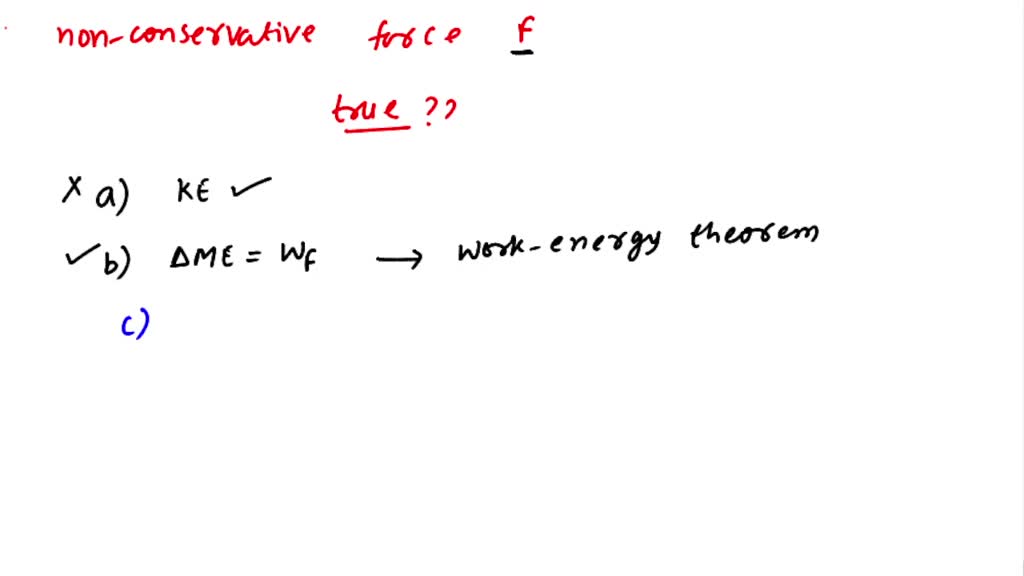 non-conservative force F
true ??
x a) KE ✓
✓ b) ΔME = WF → work-energy theorem
c)